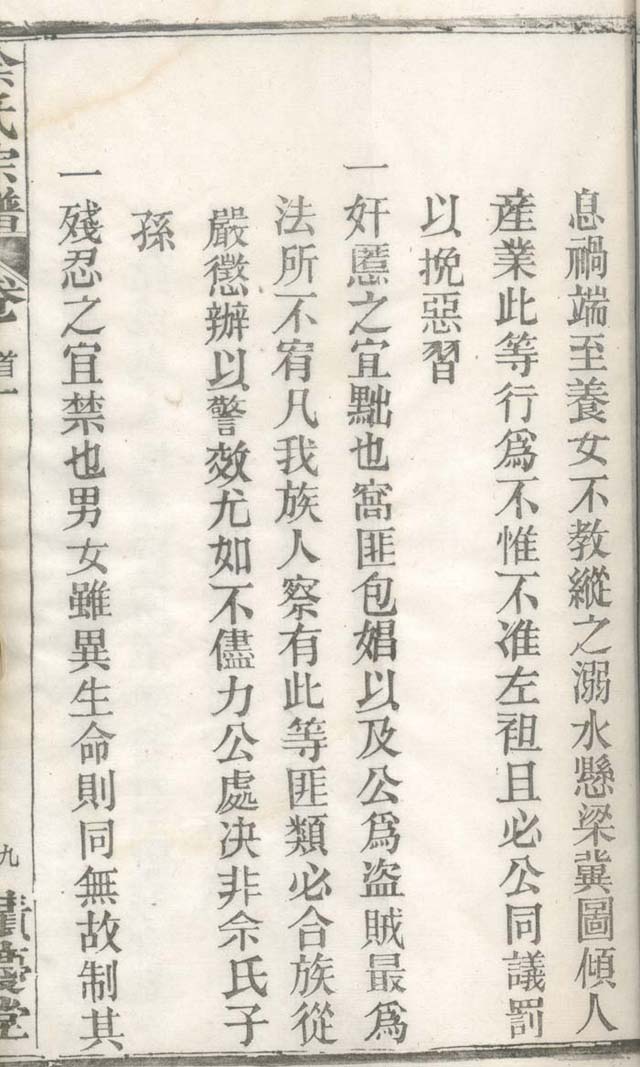 息禍端至養女不教縱之溺水懸梁冀圖傾人
産業此等行爲不惟不准左袒且必公同議罰
以挽惡習
一奸慝之宜黜也窩匪包娼以及公爲盜賊最爲
法所不宥凡我族人察有此等匪類必合族從
嚴懲辦以警效尤如不儘力公處决非佘氏子
孫
一殘忍之宜禁也男女雖異生命則同無故制其
氏宗譜
九